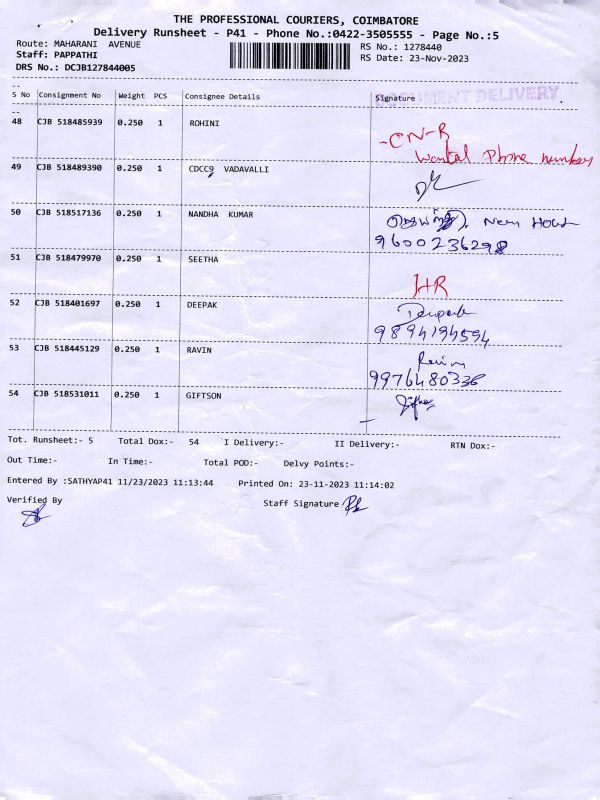 THE PROFESSIONAL COURIERS, COIMBATORE
Delivery Runsheet - P41 - Phone No.:0422-3505555 - Page No.:5
Route: MAHARANI AVENUE
RS No.: 1278440
Staff: PAPPATHI
RS Date: 23-Nov-2023
DRS No.: DCJB127844005
S No Consignment No Weight PCS Consignee Details Signature
DOCUMENT DELIVERY
48 CJB 518485939 0.250 1 ROHINI
-CN-R
Phone number
49 CJB 518489390 0.250 1 CDCC9 VADAVALLI
50 CJB 518517136 0.250 1 NANDHA KUMAR
9600236298
51 CJB 518479970 0.250 1 SEETHA
HR
52 CJB 518401697 0.250 1 DEEPAK
Deepak
9894194594
53 CJB 518445129 0.250 1 RAVIN
Ravin
9976480336
54 CJB 518531011 0.250 1 GIFTSON
Tot. Runsheet:- 5 Total Dox:- 54 I Delivery:- II Delivery:- RTN Dox:-
Out Time:- In Time:- Total POD:- Delvy Points:-
Entered By :SATHYAP41 11/23/2023 11:13:44 Printed On: 23-11-2023 11:14:02
Verified By Staff Signature